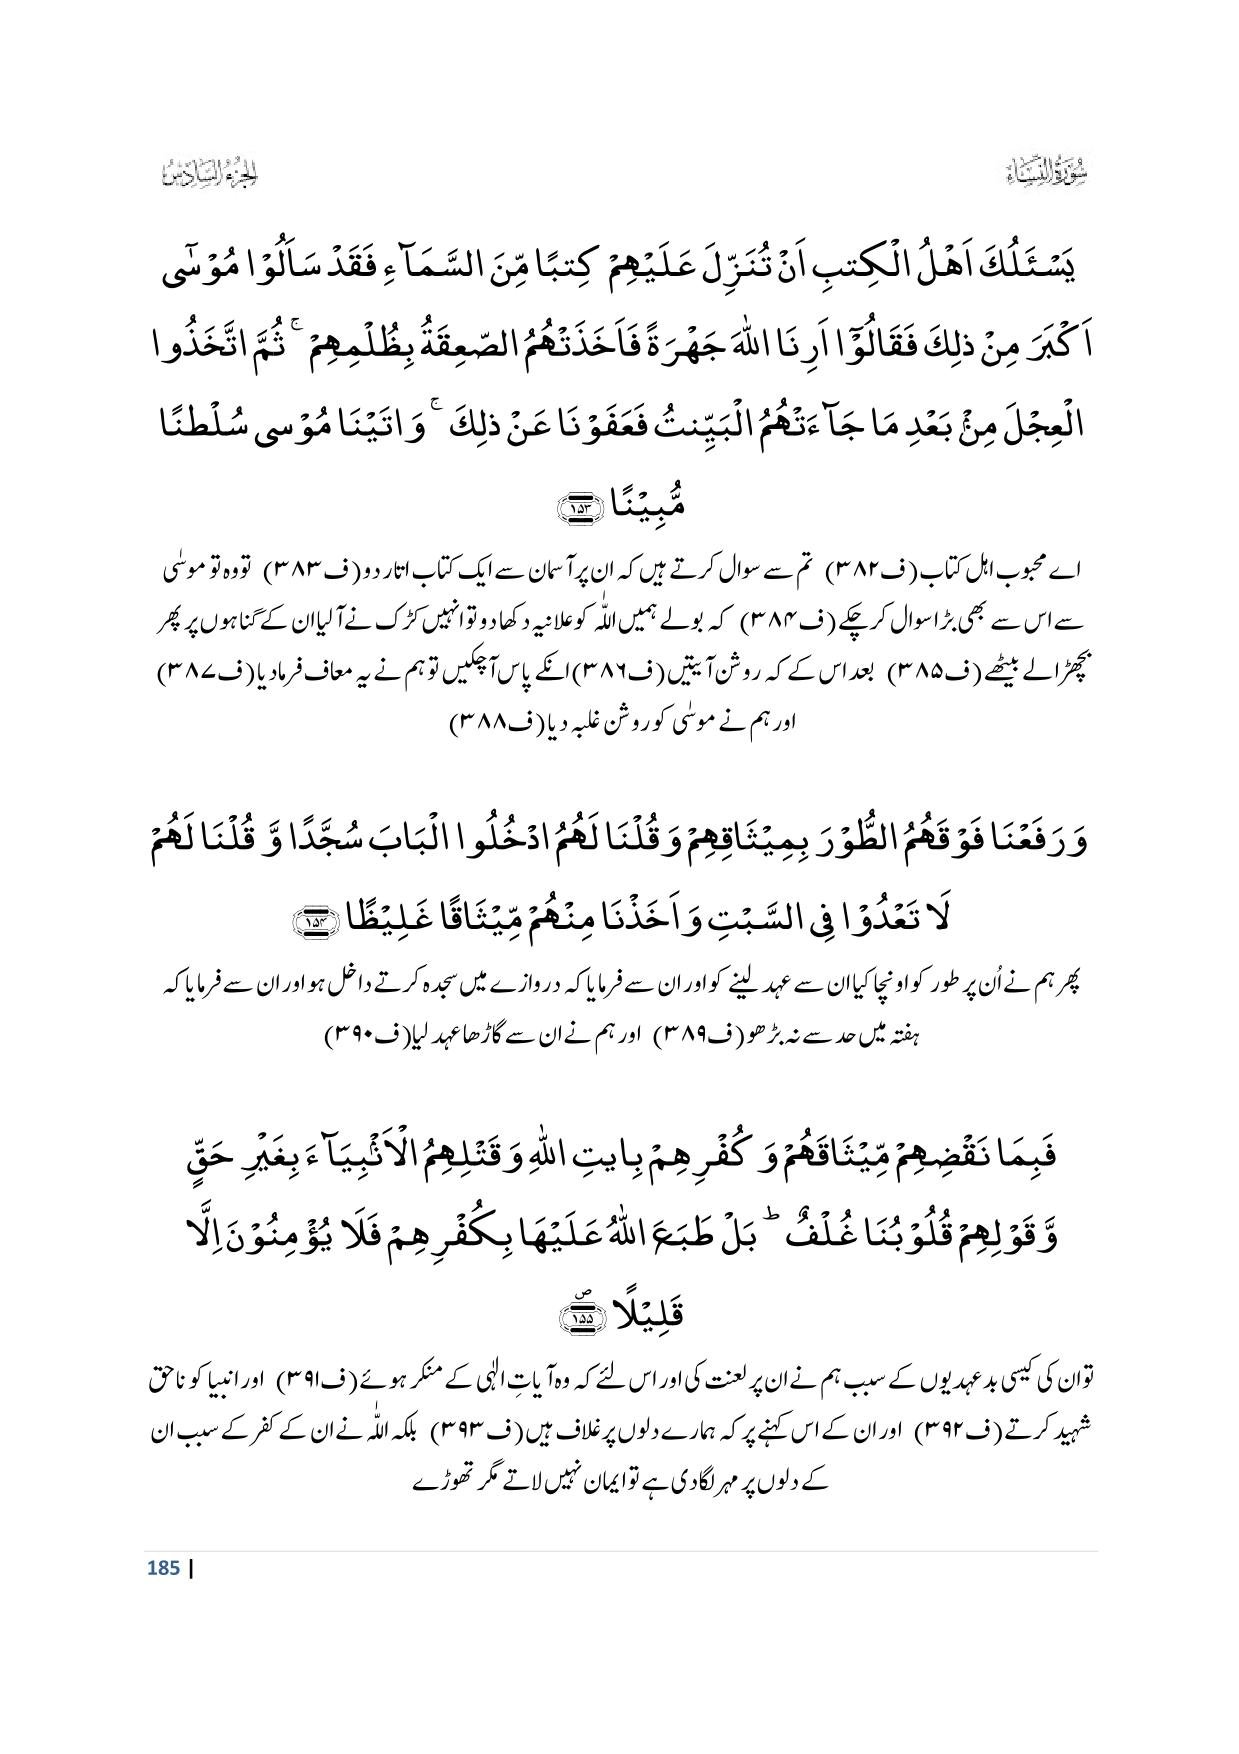 سُوْرَةُ النِّسَآء
الجزء السادس
یَسْـَٔلُكَ اَهْلُ الْكِتٰبِ اَنْ تُنَزِّلَ عَلَیْهِمْ كِتٰبًا مِّنَ السَّمَآءِ فَقَدْ سَاَلُوْا مُوْسٰۤی
اَكْبَرَ مِنْ ذٰلِكَ فَقَالُوْۤا اَرِنَا اللّٰهَ جَهْرَةً فَاَخَذَتْهُمُ الصّٰعِقَةُ بِظُلْمِهِمْ ۚ ثُمَّ اتَّخَذُوا
الْعِجْلَ مِنْۢ بَعْدِ مَا جَآءَتْهُمُ الْبَیِّنٰتُ فَعَفَوْنَا عَنْ ذٰلِكَ ۚ وَ اٰتَیْنَا مُوْسٰی سُلْطٰنًا
مُّبِیْنًا ﴿۱۵۳﴾
اے محبوب اہل کتاب (ف۳۸۲) تم سے سوال کرتے ہیں کہ ان پر آسمان سے ایک کتاب اتار دو (ف۳۸۳) تو وہ تو موسیٰ
سے اس سے بھی بڑا سوال کر چکے (ف۳۸۴) کہ بولے ہمیں اللّٰہ کو علانیہ دکھا دو تو انہیں کڑک نے آ لیا ان کے گناہوں پر پھر
بچھڑا لے بیٹھے (ف۳۸۵) بعد اس کے کہ روشن آیتیں (ف۳۸۶) انکے پاس آ چکیں تو ہم نے یہ معاف فرما دیا (ف۳۸۷)
اور ہم نے موسٰی کو روشن غلبہ دیا (ف۳۸۸)
وَ رَفَعْنَا فَوْقَهُمُ الطُّوْرَ بِمِیْثَاقِهِمْ وَ قُلْنَا لَهُمُ ادْخُلُوا الْبَابَ سُجَّدًا وَّ قُلْنَا لَهُمْ
لَا تَعْدُوْا فِی السَّبْتِ وَ اَخَذْنَا مِنْهُمْ مِّیْثَاقًا غَلِیْظًا ﴿۱۵۴﴾
پھر ہم نے اُن پر طور کو اونچا کیا ان سے عہد لینے کو اور ان سے فرمایا کہ دروازے میں سجدہ کرتے داخل ہو اور ان سے فرمایا کہ
ہفتہ میں حد سے نہ بڑھو (ف۳۸۹) اور ہم نے ان سے گاڑھا عہد لیا (ف۳۹۰)
فَبِمَا نَقْضِهِمْ مِّیْثَاقَهُمْ وَ كُفْرِهِمْ بِاٰیٰتِ اللّٰهِ وَ قَتْلِهِمُ الْاَنْۢبِیَآءَ بِغَیْرِ حَقٍّ
وَّ قَوْلِهِمْ قُلُوْبُنَا غُلْفٌ ؕ بَلْ طَبَعَ اللّٰهُ عَلَیْهَا بِكُفْرِهِمْ فَلَا یُؤْمِنُوْنَ اِلَّا
قَلِیْلًا ۪﴿۱۵۵﴾
تو ان کی کیسی بد عہدیوں کے سبب ہم نے ان پر لعنت کی اور اس لئے کہ وہ آیاتِ الٰہی کے منکر ہوئے (ف۳۹۱) اور انبیا کو ناحق
شہید کرتے (ف۳۹۲) اور ان کے اس کہنے پر کہ ہمارے دلوں پر غلاف ہیں (ف۳۹۳) بلکہ اللّٰہ نے ان کے کفر کے سبب ان
کے دلوں پر مہر لگا دی ہے تو ایمان نہیں لاتے مگر تھوڑے
185 |